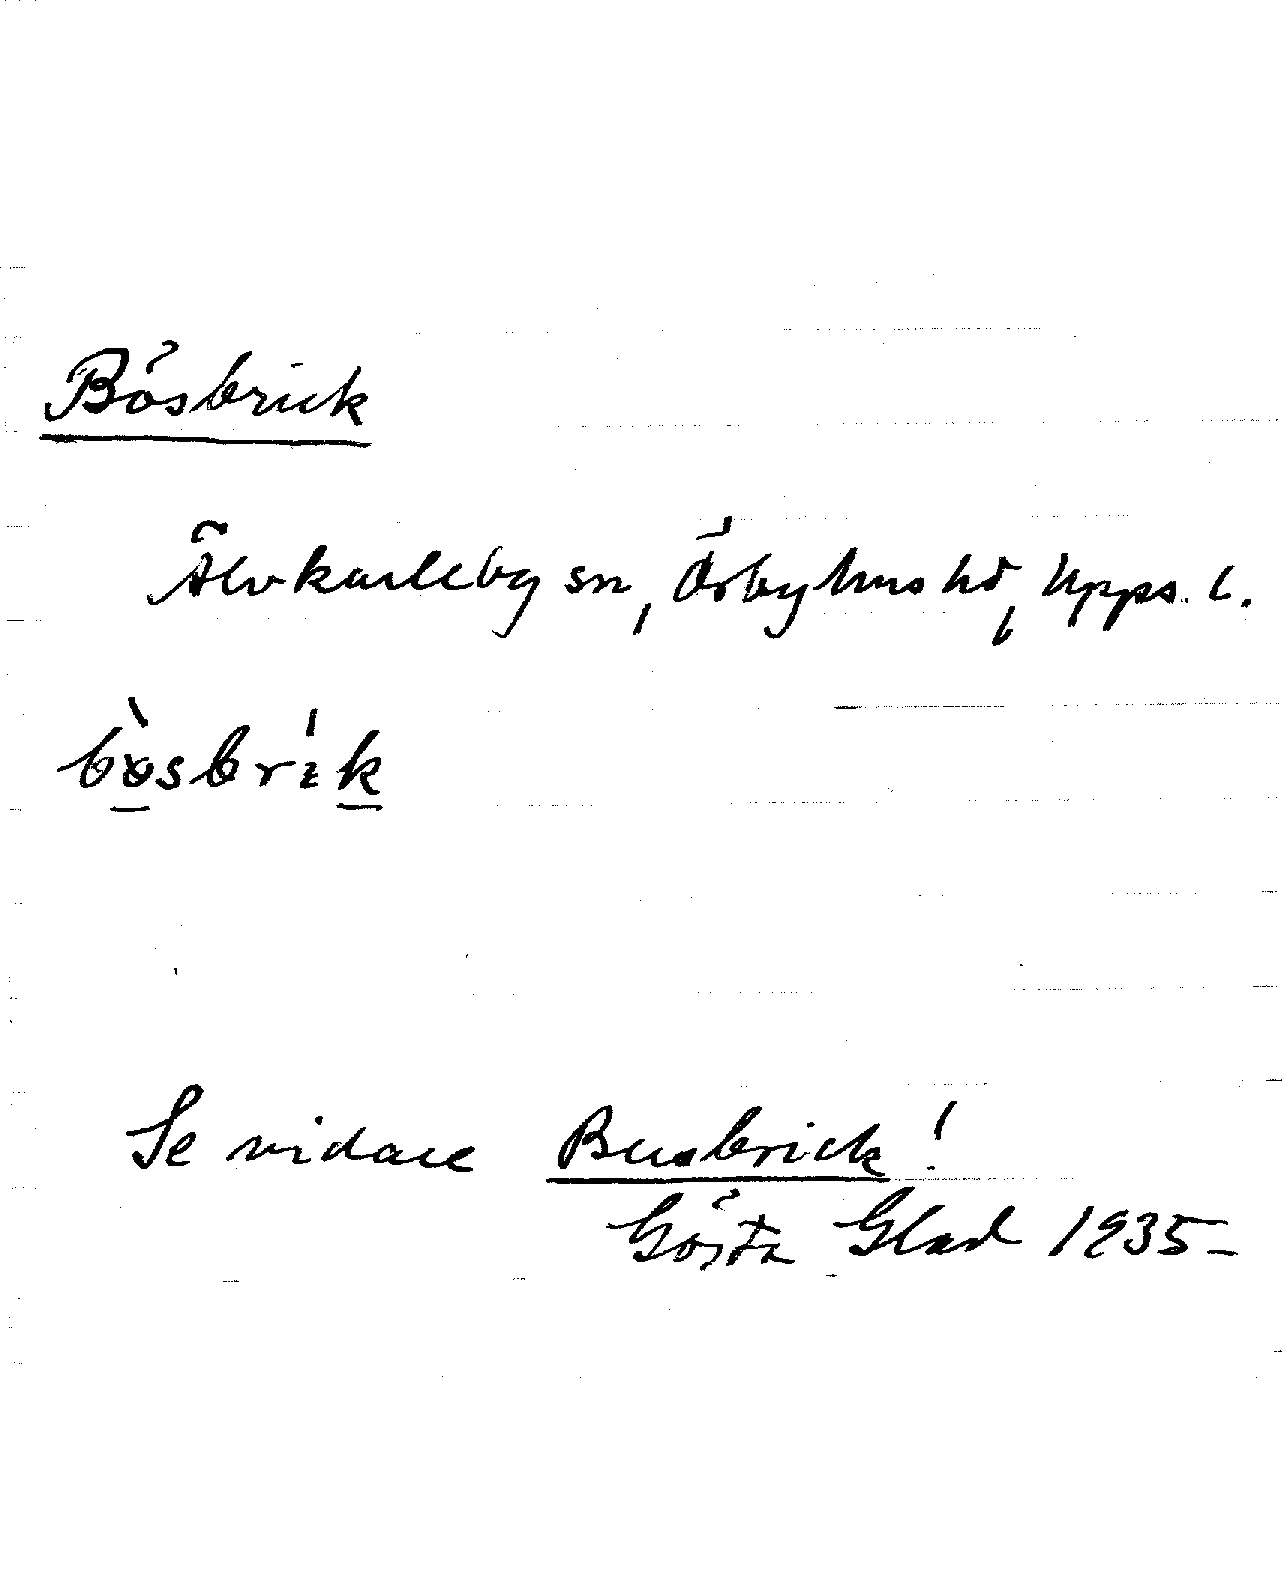 Bösbrick
Älvkarleby sn, Örbyhus hd, Upps. l.
Se vidare Busbrick!
Gösta Glad 1935-